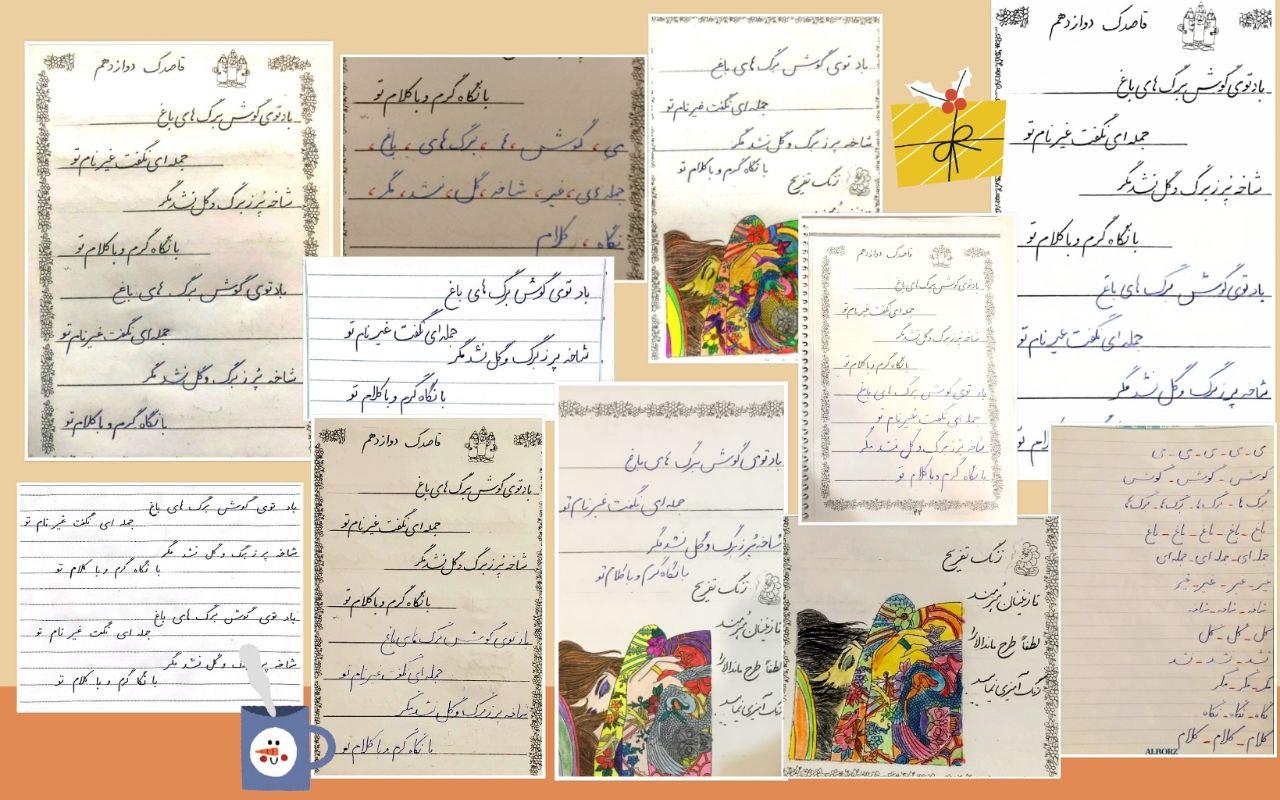 قاصدک دوازدهم
باد توی گوش برگ های باغ
جمله ای نگفت غیر نام تو
شاخه پُر ز برگ و گل نشد مگر
با نگاه گرم و با کلام تو
باد توی گوش برگ های باغ
جمله ای نگفت غیر نام تو
شاخه پُر ز برگ و گل نشد مگر
با نگاه گرم و با کلام تو
با نگاه گرم و با کلام تو
ی، گوش، ها، برگ های، باغ،
جمله ای، غیر، شاخه، گل، نشد، مگر،
نگاه، کلام
باد توی گوش برگ های باغ
جمله ای نگفت غیر نام تو
شاخه پر ز برگ و گل نشد مگر
با نگاه گرم و با کلام تو
زنگ تفریح
قاصدک دوازدهم
باد توی گوش برگ های باغ
جمله ای نگفت غیر نام تو
شاخه پر ز برگ و گل نشد مگر
با نگاه گرم و با کلام تو
باد توی گوش برگ های باغ
جمله ای نگفت غیر نام تو
شاخه پر ز برگ و گل نشد مگر
باد توی گوش برگ های باغ
جمله ای نگفت غیر نام تو
شاخه پر ز برگ و گل نشد مگر
با نگاه گرم و با کلام تو
قاصدک دوازدهم
باد توی گوش برگ های باغ
جمله ای نگفت غیر نام تو
شاخه پر ز برگ و گل نشد مگر
با نگاه گرم و با کلام تو
باد توی گوش برگ های باغ
جمله ای نگفت غیر نام تو
شاخه پر ز برگ و گل نشد مگر
با نگاه گرم و با کلام تو
۴۲
باد توی گوش برگ های باغ
جمله ای نگفت غیر نام تو
شاخه پر ز برگ و گل نشد مگر
با نگاه گرم و با کلام تو
باد توی گوش برگ های باغ
جمله ای نگفت غیر نام تو
شاخه پر ز برگ و گل نشد مگر
با نگاه گرم و با کلام تو
قاصدک دوازدهم
باد توی گوش برگ های باغ
جمله ای نگفت غیر نام تو
شاخه پر ز برگ و گل نشد مگر
با نگاه گرم و با کلام تو
باد توی گوش برگ های باغ
جمله ای نگفت غیر نام تو
شاخه پر ز برگ و گل نشد مگر
با نگاه گرم و با کلام تو
باد توی گوش برگ های باغ
جمله ای نگفت غیر نام تو
شاخه پُر ز برگ و گل نشد مگر
با نگاه گرم و با کلام تو
زنگ تفریح
نازنینان هنرمند
لطفاً طرح ماندالا را
رنگ آمیزی نمایید
زنگ تفریح
نازنینان هنرمند
لطفاً طرح ماندالا را
رنگ آمیزی نمایید
ی - ی - ی - ی - ی
گوش - گوش - گوش
برگ ها - برگ ها - برگ ها - برگ ها
باغ - باغ - باغ - باغ - باغ
جمله ای - جمله ای - جمله ای
غیر - غیر - غیر - غیر
شاخه - شاخه - شاخه
گل - گل - گل - گل
نشد - نشد - نشد - نشد
مگر - مگر - مگر - مگر
نگاه - نگاه - نگاه
کلام - کلام - کلام
ALBORZ